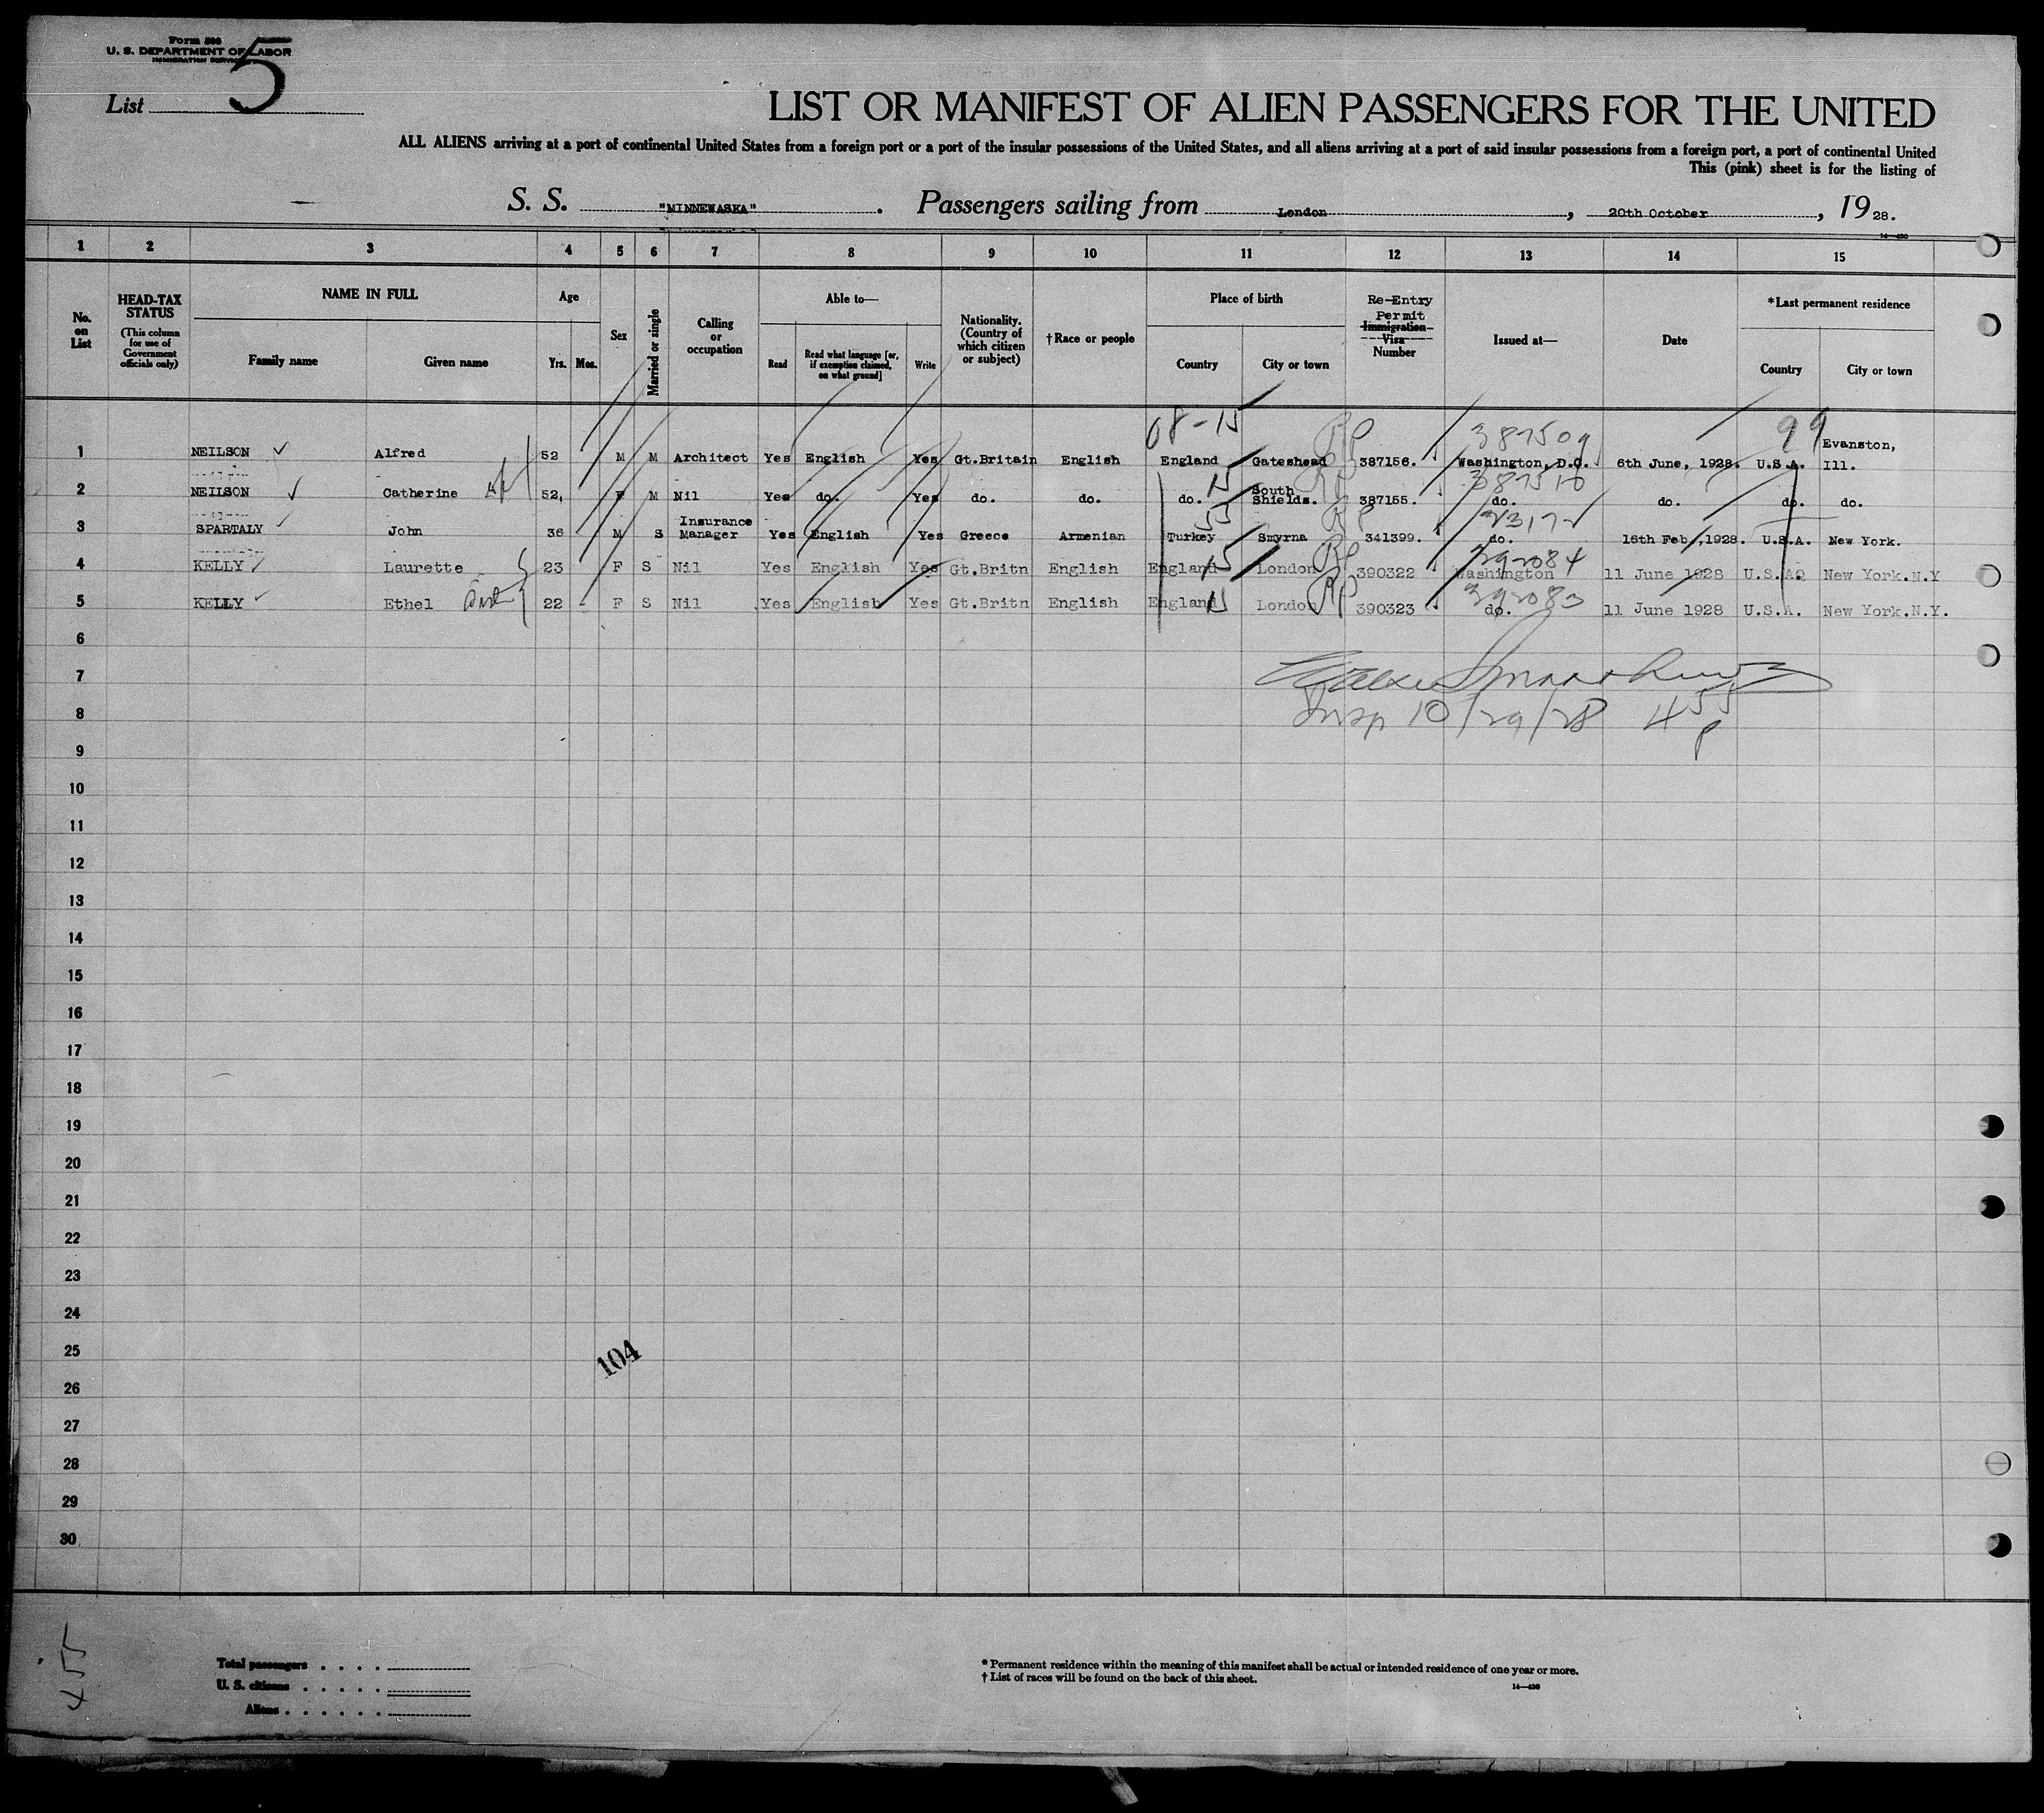 Form 500
U. S. DEPARTMENT OF LABOR
IMMIGRATION SERVICE
List 5
LIST OR MANIFEST OF ALIEN PASSENGERS FOR THE UNITED
ALL ALIENS arriving at a port of continental United States from a foreign port or a port of the insular possessions of the United States, and all aliens arriving at a port of said insular possessions from a foreign port, a port of continental United
This (pink) sheet is for the listing of
S. S. "MINNEWASKA". Passengers sailing from London, 20th October, 1928.
14-430
1 2 3 4 5 6 7 8 9 10 11 12 13 14 15
No. on List
HEAD-TAX STATUS (This column for use of Government officials only)
NAME IN FULL
Family name
Given name
Age
Yrs. Mos.
Sex
Married or single
Calling or occupation
Able to—
Read
Read what language [or, if exemption claimed, on what ground]
Write
Nationality. (Country of which citizen or subject)
†Race or people
Place of birth
Country
City or town
Re-Entry Permit
Immigration Visa Number
Issued at—
Date
*Last permanent residence
Country
City or town
08-15 RP 387509 99
1 NEILSON Alfred 52 M M Architect Yes English Yes Gt.Britain English England Gateshead 387156. Washington, D.C. 6th June, 1928. U.S.A. Evanston, Ill.
15 RP 387510
2 NEILSON Catherine 52, F M Nil Yes do. Yes do. do. do. South Shields. 387155. do. do. do. do.
55 RP
3 SPARTALY John 36 M S Insurance Manager Yes English Yes Greece Armenian Turkey Smyrna 341399. do. 16th Feb, 1928. U.S.A. New York.
15 RP 392084
4 KELLY Laurette 23 F S Nil Yes English Yes Gt.Britn English England London 390322 Washington 11 June 1928 U.S.A. New York.N.Y
15 RP 392083
5 KELLY Ethel 22 - F S Nil Yes English Yes Gt.Britn English England London 390323 do. 11 June 1928 U.S.A. New York.N.Y.
6
7
8 Insp 10/29/28 4 55 p
9
10
11
12
13
14
15
16
17
18
19
20
21
22
23
24
25
104
26
27
28
29
30
455
Total passengers . . . .
U. S. citizens . . . . .
Aliens . . . . . .
* Permanent residence within the meaning of this manifest shall be actual or intended residence of one year or more.
† List of races will be found on the back of this sheet.
14—430